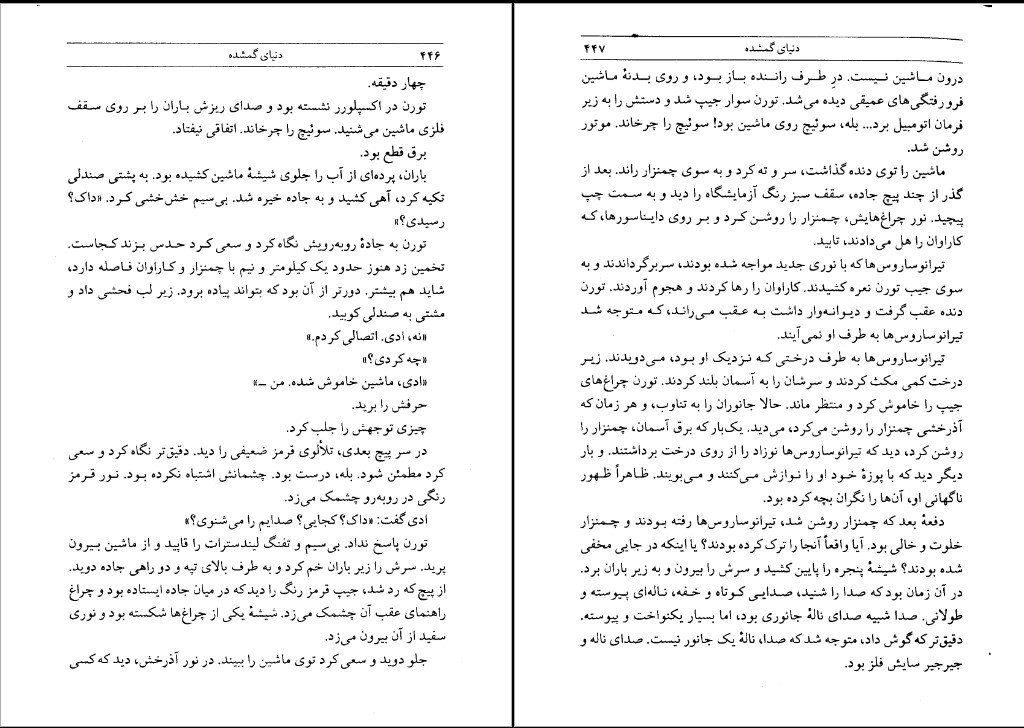 ۴۴۶ دنیای گمشده
چهار دقیقه.
تورن در اکسپلورر نشسته بود و صدای ریزش باران را بر روی سقف
فلزی ماشین می‌شنید. سوئیچ را چرخاند. اتفاقی نیفتاد.
برق قطع بود.
باران، پرده‌ای از آب را جلوی شیشهٔ ماشین کشیده بود. به پشتی صندلی
تکیه کرد، آهی کشید و به جاده خیره شد. بی‌سیم خش‌خشی کرد. «داک؟
رسیدی؟»
تورن به جادهٔ روبه‌رویش نگاه کرد و سعی کرد حدس بزند کجاست.
تخمین زد هنوز حدود یک کیلومتر و نیم با چمنزار و کاراوان فاصله دارد،
شاید هم بیشتر. دورتر از آن بود که بتواند پیاده برود. زیر لب فحشی داد و
مشتی به صندلی کوبید.
«نه، ادی. اتصالی کردم.»
«چه کردی؟»
«ادی، ماشین خاموش شده. من ـ»
حرفش را برید.
چیزی توجهش را جلب کرد.
در سر پیچ بعدی، تلألوی قرمز ضعیفی را دید. دقیق‌تر نگاه کرد و سعی
کرد مطمئن شود. بله، درست بود. چشمانش اشتباه نکرده بود. نور قرمز
رنگی در روبه‌رو چشمک می‌زد.
ادی گفت: «داک؟ کجایی؟ صدایم را می‌شنوی؟»
تورن پاسخ نداد. بی‌سیم و تفنگ لیندسترات را قاپید و از ماشین بیرون
پرید. سرش را زیر باران خم کرد و به طرف بالای تپه و دو راهی جاده دوید.
از پیچ که رد شد، جیپ قرمز رنگ را دید که در میان جاده ایستاده بود و چراغ
راهنمای عقب آن چشمک می‌زد. شیشهٔ یکی از چراغ‌ها شکسته بود و نوری
سفید از آن بیرون می‌زد.
جلو دوید و سعی کرد توی ماشین را ببیند. در نور آذرخش، دید که کسی
دنیای گمشده ۴۴۷
درون ماشین نیست. درِ طرف راننده باز بود، و روی بدنهٔ ماشین
فرورفتگی‌های عمیقی دیده می‌شد. تورن سوار جیپ شد و دستش را به زیر
فرمان اتومبیل برد... بله، سوئیچ روی ماشین بود! سوئیچ را چرخاند. موتور
روشن شد.
ماشین را توی دنده گذاشت، سر و ته کرد و به سوی چمنزار راند. بعد از
گذر از چند پیچ جاده، سقف سبز رنگ آزمایشگاه را دید و به سمت چپ
پیچید. نور چراغ‌هایش، چمنزار را روشن کرد و بر روی دایناسورها، که
کاراوان را هل می‌دادند، تابید.
تیرانوساروس‌ها که با نوری جدید مواجه شده بودند، سربرگرداندند و به
سوی جیپ تورن نعره کشیدند. کاراوان را رها کردند و هجوم آوردند. تورن
دنده عقب گرفت و دیوانه‌وار داشت به عقب می‌راند، که متوجه شد
تیرانوساروس‌ها به طرف او نمی‌آیند.
تیرانوساروس‌ها به طرف درختی که نزدیک او بود، می‌دویدند. زیر
درخت کمی مکث کردند و سرشان را به آسمان بلند کردند. تورن چراغ‌های
جیپ را خاموش کرد و منتظر ماند. حالا جانوران را به تناوب، و هر زمان که
آذرخشی چمنزار را روشن می‌کرد، می‌دید. یک‌بار که برق آسمان، چمنزار را
روشن کرد، دید که تیرانوساروس‌ها نوزاد را از روی درخت برداشتند. و بار
دیگر دید که با پوزهٔ خود او را نوازش می‌کنند و می‌بویند. ظاهراً ظهور
ناگهانی او، آن‌ها را نگران بچه کرده بود.
دفعهٔ بعد که چمنزار روشن شد، تیرانوساروس‌ها رفته بودند و چمنزار
خلوت و خالی بود. آیا واقعاً آنجا را ترک کرده بودند؟ یا اینکه در جایی مخفی
شده بودند؟ شیشهٔ پنجره را پایین کشید و سرش را بیرون و به زیر باران برد.
در آن زمان بود که صدا را شنید، صدایی کوتاه و خفه، ناله‌ای پیوسته و
طولانی. صدا شبیه صدای نالهٔ جانوری بود، اما بسیار یکنواخت و پیوسته.
دقیق‌تر که گوش داد، متوجه شد که صدا، نالهٔ یک جانور نیست. صدای ناله و
جیرجیر سایش فلز بود.